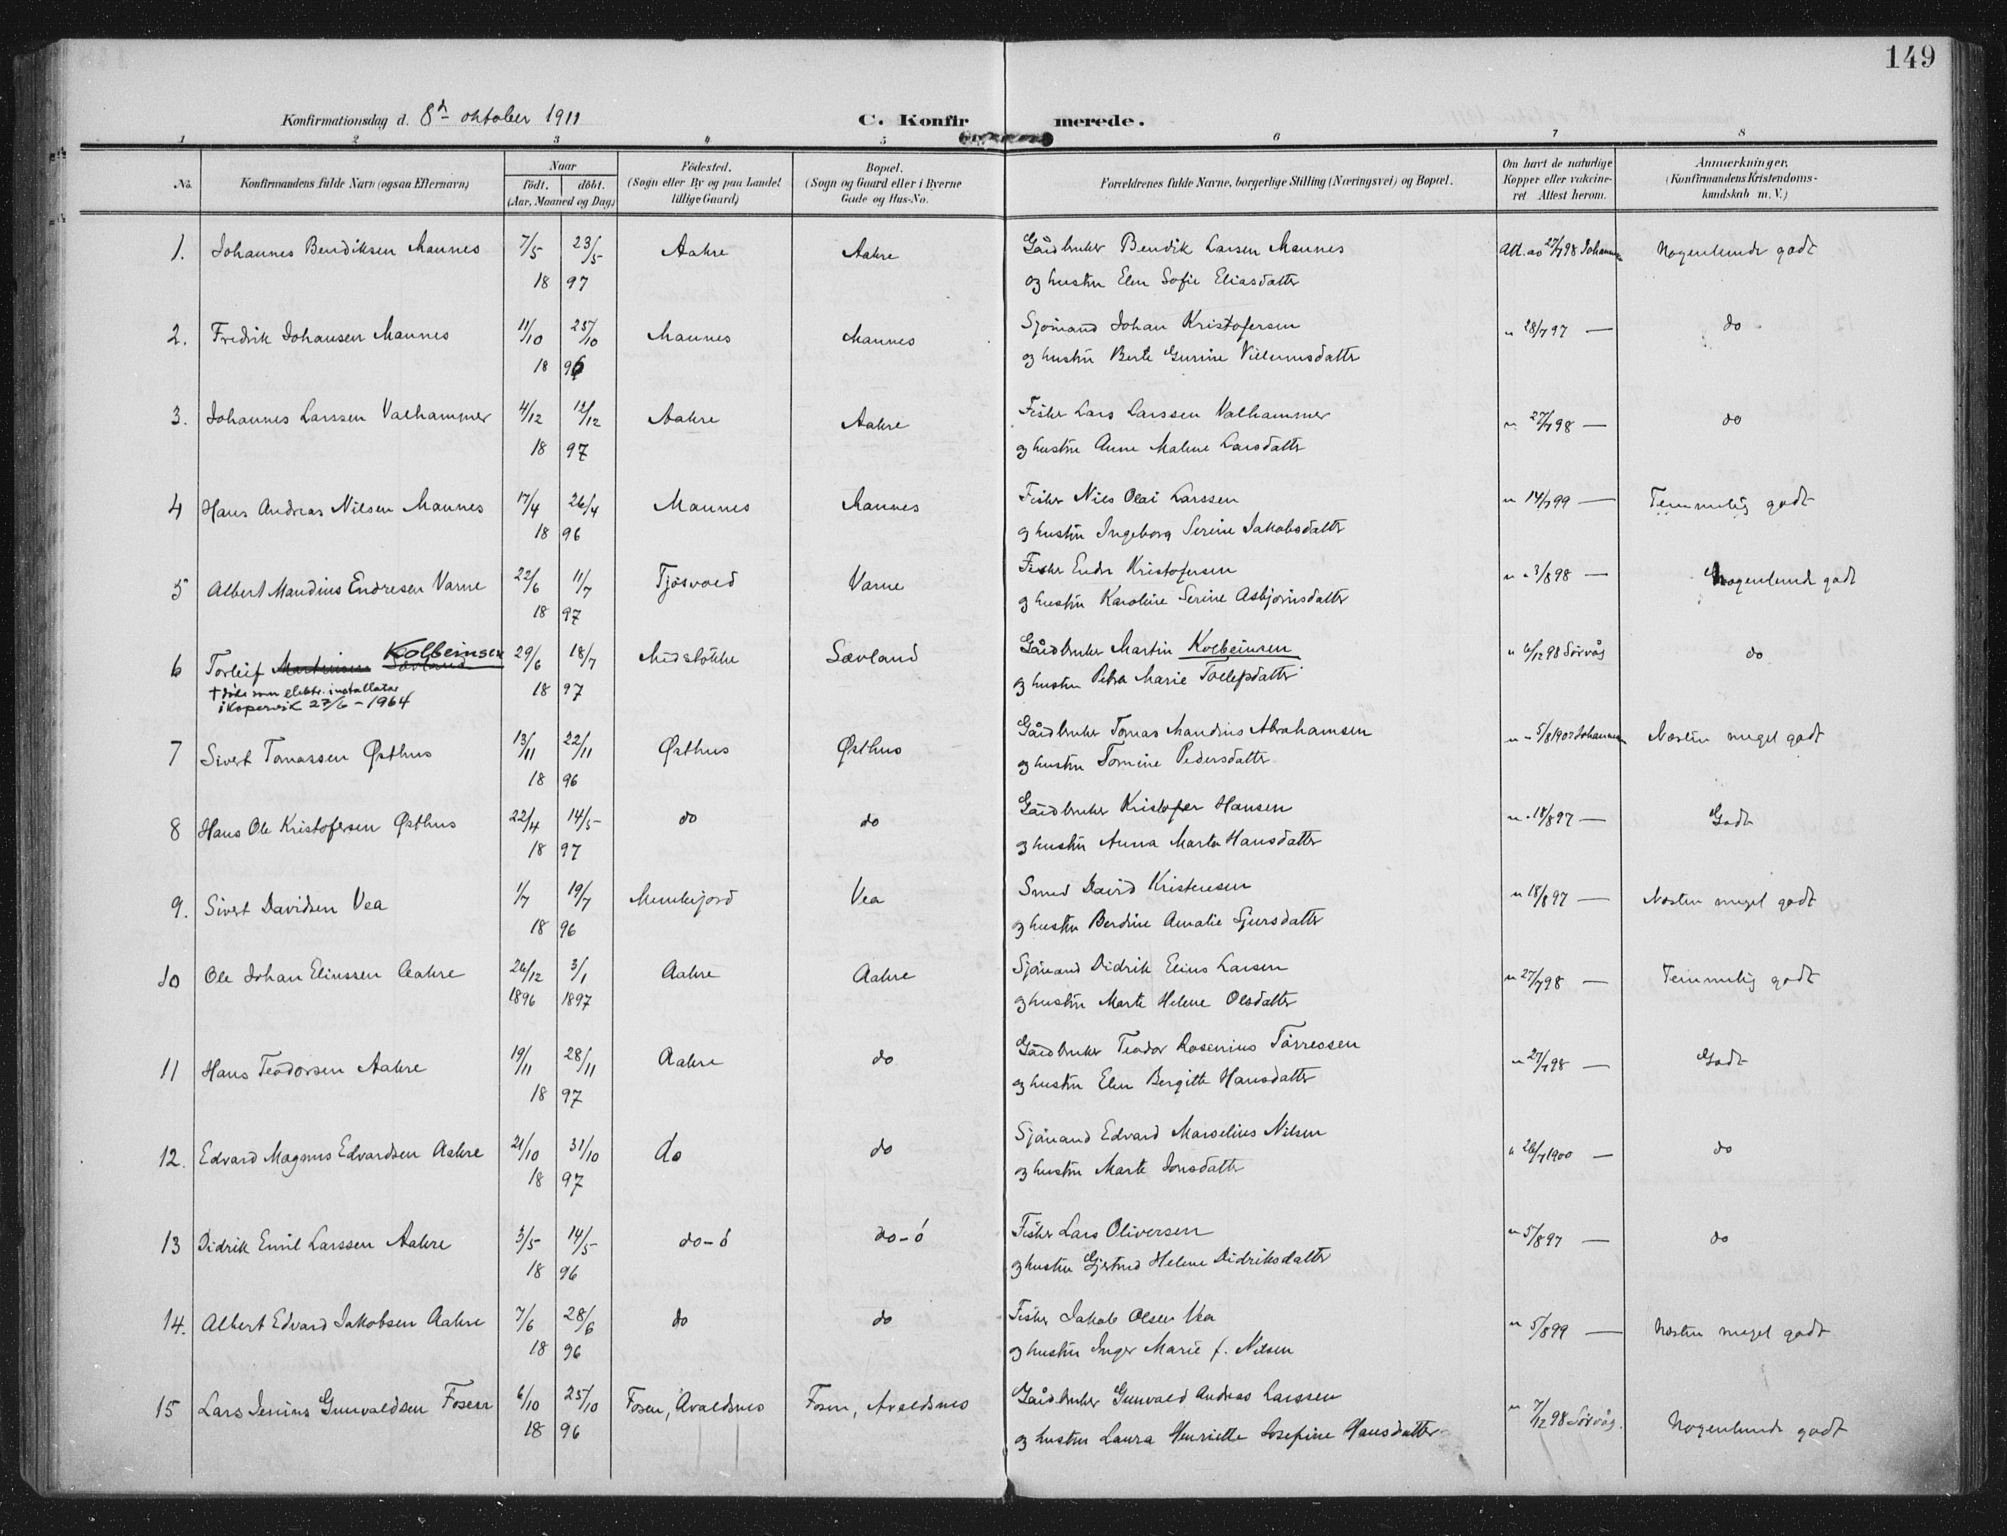 149
Konfirmationsdag d. 8d oktober 1911 C. Konfirmerede.
1 2 3 4 5 6 7 8
No. Konfirmandens fulde Navn (ogsaa Efternavn) Naar födt. döbt. (Aar, Maaned og Dag) Födested. (Sogn eller By og paa Landet tillige Gaard) Bopæl. (Sogn og Gaard eller i Byerne Gade og Hus-No. Forældrenes fulde Navne, borgerlige Stilling (Næringsvei) og Bopæl. Om havt de naturlige Kopper eller vakcineret Attest herom. Anmærkninger. (Konfirmandens Kristendomskundskab m. V.)
1. Johannes Bendiksen Mannes 7/5 23/5 Aakre Aakre Gårdbruker Bendik Larsen Mannes Att. av 27/7 98 Johannesen Nogenlunde godt
18 97 og hustru Elen Sofie Eliasdatter
2. Fredrik Johansen Mannes 11/10 25/10 Mannes Mannes Sjömand Johan Kristofersen " 28/7 97 — do
18 96 og hustru Berte Gurine Villumsdatter
3. Johannes Larssen Valhammer 4/12 12/12 Aakre Aakre Fisker Lars Larssen Valhammer " 27/7 98 — do
18 97 og hustru Anne Malene Larsdatter
4 Hans Andreas Nilsen Mannes 17/4 26/4 Mannes Mannes Fisker Nils Olai Larssen " 14/7 99 — Temmelig godt
18 96 og hustru Ingeborg Serine Jakobsdatter
5 Albert Mandius Endresen Varne 22/6 11/7 Tjösvold Varne Fisker Endre Kristofersen " 3/8 98 — Nogenlunde godt
18 97 og hustru Karoline Serine Asbjörnsdatter
6 Torleif Martinsen Sævland Kolbeinsen 29/6 18/7 Midstökke Sævland Gårdbruker Martin Kolbeinsen " 6/12 98 Sörvåg do
† döde som elektr. installatør 18 97 og hustru Petra Marie Tollefsdatter
i Kopervik 27/6 - 1964
7 Sivert Tomassen Østhus 13/11 22/11 Østhus Østhus Gårdbruker Tomas Mandius Abrahamsen " 5/8 1902 Johannesen Næsten meget godt
18 96 og hustru Tomine Pedersdatter
8 Hans Ole Kristofersen Østhus 22/4 14/5 do do Gårdbruker Kristofer Hansen " 18/8 97 — Godt
18 97 og hustru Anna Marta Hansdatter
9. Sivert Davidsen Vea 1/7 19/7 Munkejord Vea Smed David Kristensen " 18/8 97 — Næsten meget godt
18 96 og hustru Berdine Amalie Sjursdatter
10 Ole Johan Eliussen Aakre 26/12 3/1 Aakre Aakre Sjömand Didrik Elius Larsen " 27/7 98 — Temmelig godt
1896 1897 og hustru Marte Helene Olsdatter
11 Hans Teodorsen Aakre 19/11 28/11 Aakre do Gårdbruker Teodor Rosenius Törressen " 27/7 98 — Godt
18 97 og hustru Elen Bergitte Hansdatter
12. Edvard Magnus Edvardsen Aakre 21/10 31/10 do do Sjömand Edvard Marselius Nilsen " 26/7 1900 — do
18 97 og hustru Marte Jonsdatter
13 Didrik Emil Larssen Aakre 3/5 14/5 do-ö do-ö Fisker Lars Oliversen " 5/8 97 — do
18 96 og hustru Gjertrud Helene Didriksdatter
14. Albert Edvard Jakobsen Aakre 7/6 28/6 do do Fisker Jakob Olsen Vea " 5/8 99 — Næsten meget godt
18 96 og hustru Inger Marie f. Nilsen
15 Lars Jenius Gunvaldsen Fosen 6/10 25/10 Fosen, Avaldsnes Fosen, Avaldsnes Gårdbruker Gunvald Andreas Larssen " 7/12 98 Sörvåg. Nogenlunde godt
18 96 og hustru Laura Henriette Josefine Hansdatter